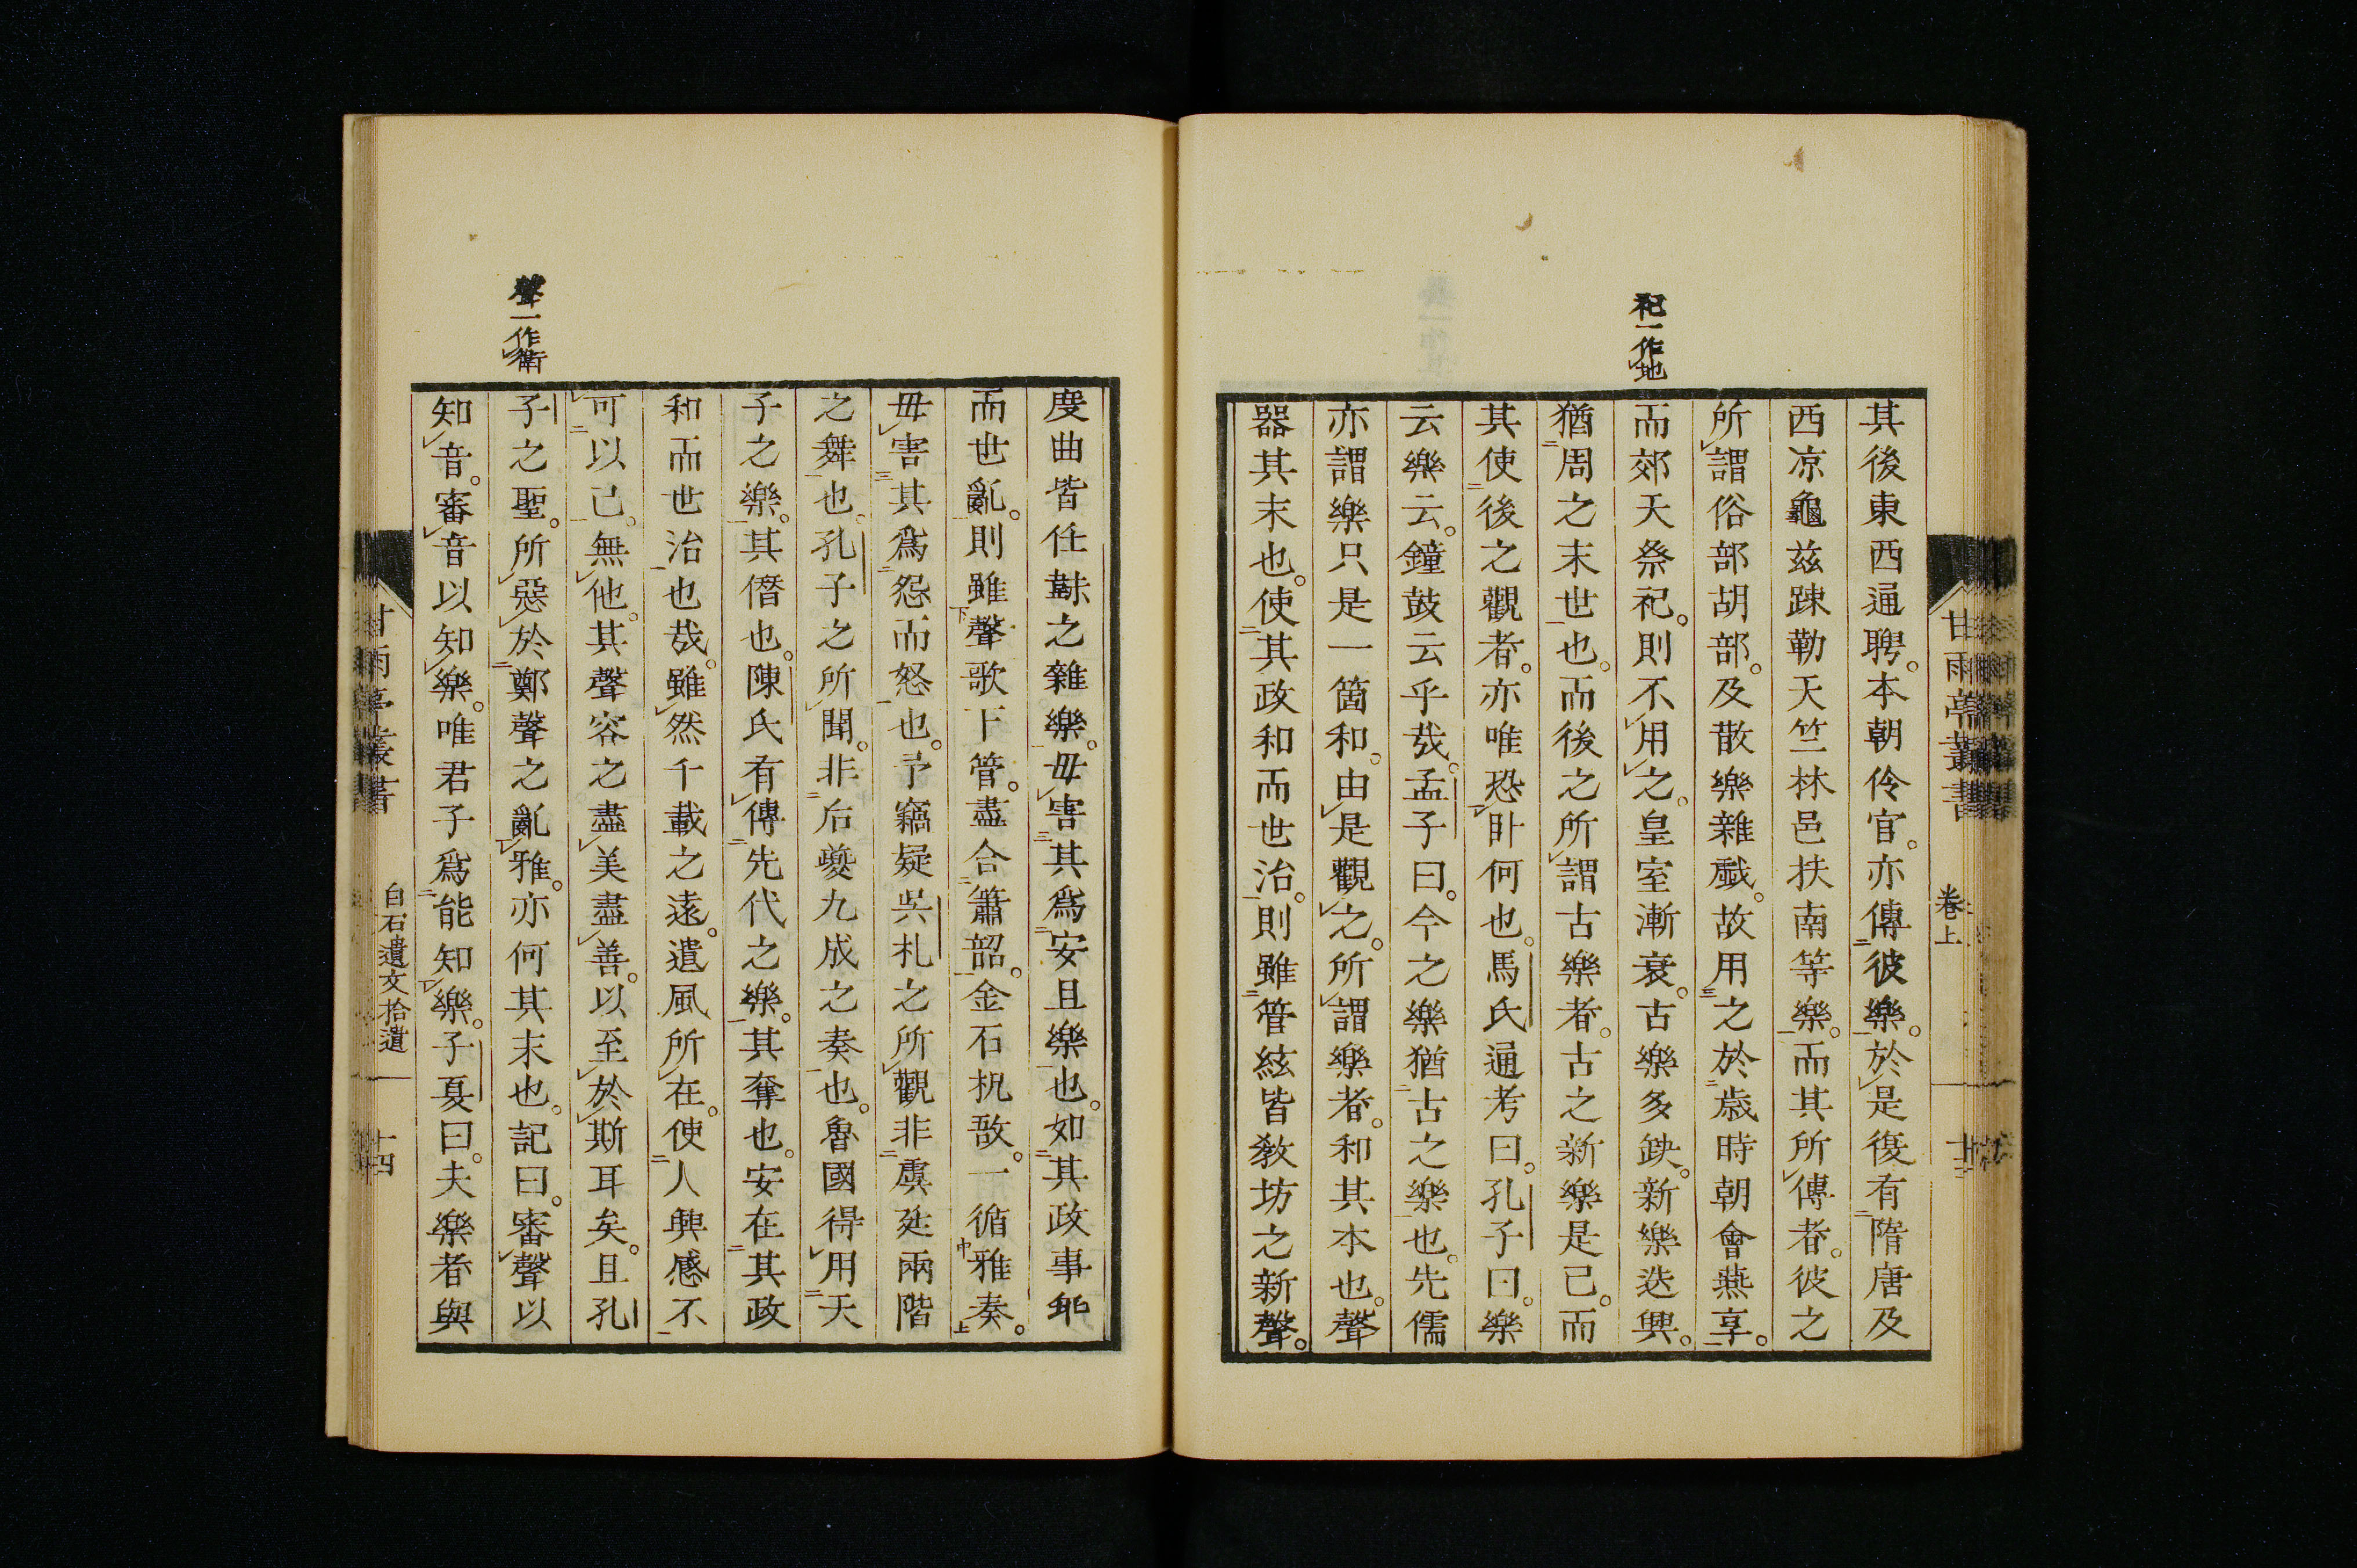 甘雨亭叢書 卷上
祀一作地
其後東西通聘。本朝伶官。亦傳彼樂。於是復有隋唐及
西凉龜茲踈勒天竺林邑扶南等樂。而其所傳者。彼之
所謂俗部胡部。及散樂雜戲。故用之於歳時朝會燕享。
而郊天祭祀。則不用之。皇室漸衰。古樂多缺。新樂迭興。
猶周之末世也。而後之所謂古樂者。古之新樂是已。而
其使後之觀者。亦唯恐卧何也。馬氏通考曰。孔子曰。樂
云樂云。鐘鼓云乎哉。孟子曰。今之樂猶古之樂也。先儒
亦謂樂只是一箇和。由是觀之。所謂樂者。和其本也。聲
器其末也。使其政和而世治。則雖管絃皆教坊之新聲。
度曲皆任韎之雜樂。毋害其爲安且樂也。如其政事乖
而世亂。則雖聲歌下管。盡合簫韶。金石柷敔。一循雅奏。
毋害其爲怨而怒也。予竊疑吳札之所觀非虞廷兩階
之舞也。孔子之所聞。非后夔九成之奏也。魯國得用天
子之樂。其僭也。陳氏有傳先代之樂。其奪也。安在其政
和而世治也哉。雖然千載之遠。遺風所在。使人興感不
可以已。無他。其聲容之盡美盡善。以至於斯耳矣。且孔
聲一作衛
子之聖。所惡於鄭聲之亂雅。亦何其末也。記曰。審聲以
知音。審音以知樂。唯君子爲能知樂。子夏曰。夫樂者與
甘雨亭叢書 白石遺文拾遺 十四